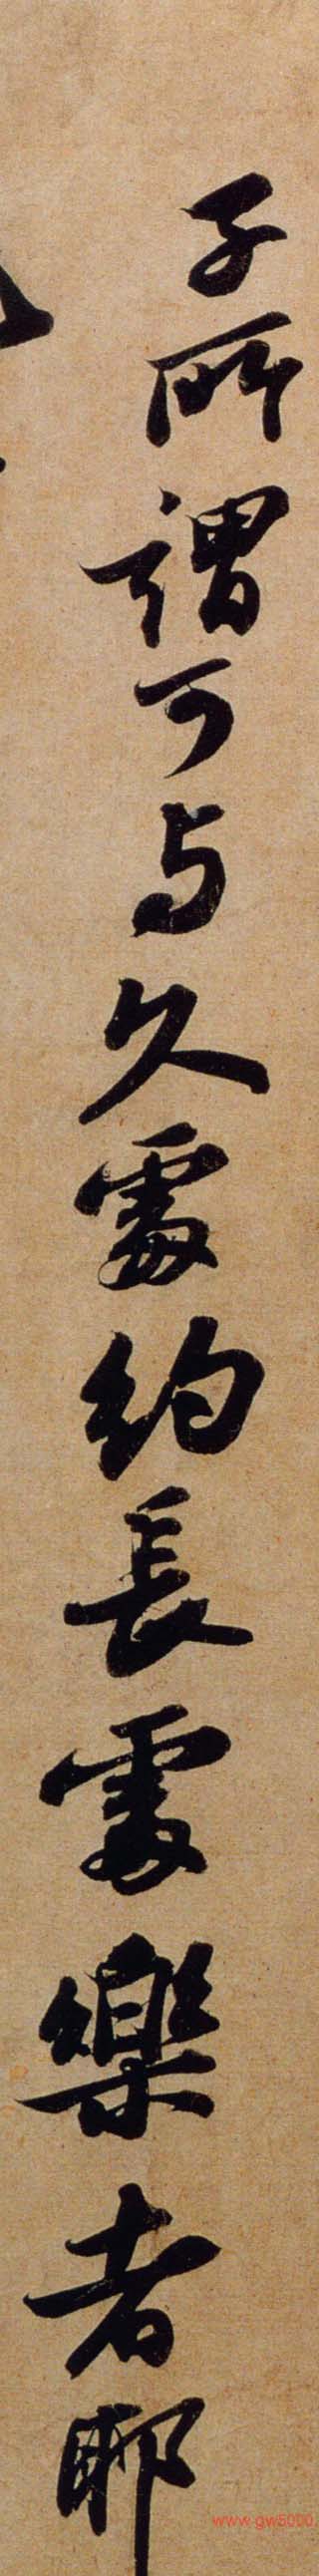 子所謂可与久處約長處樂者耶
www.gw5000